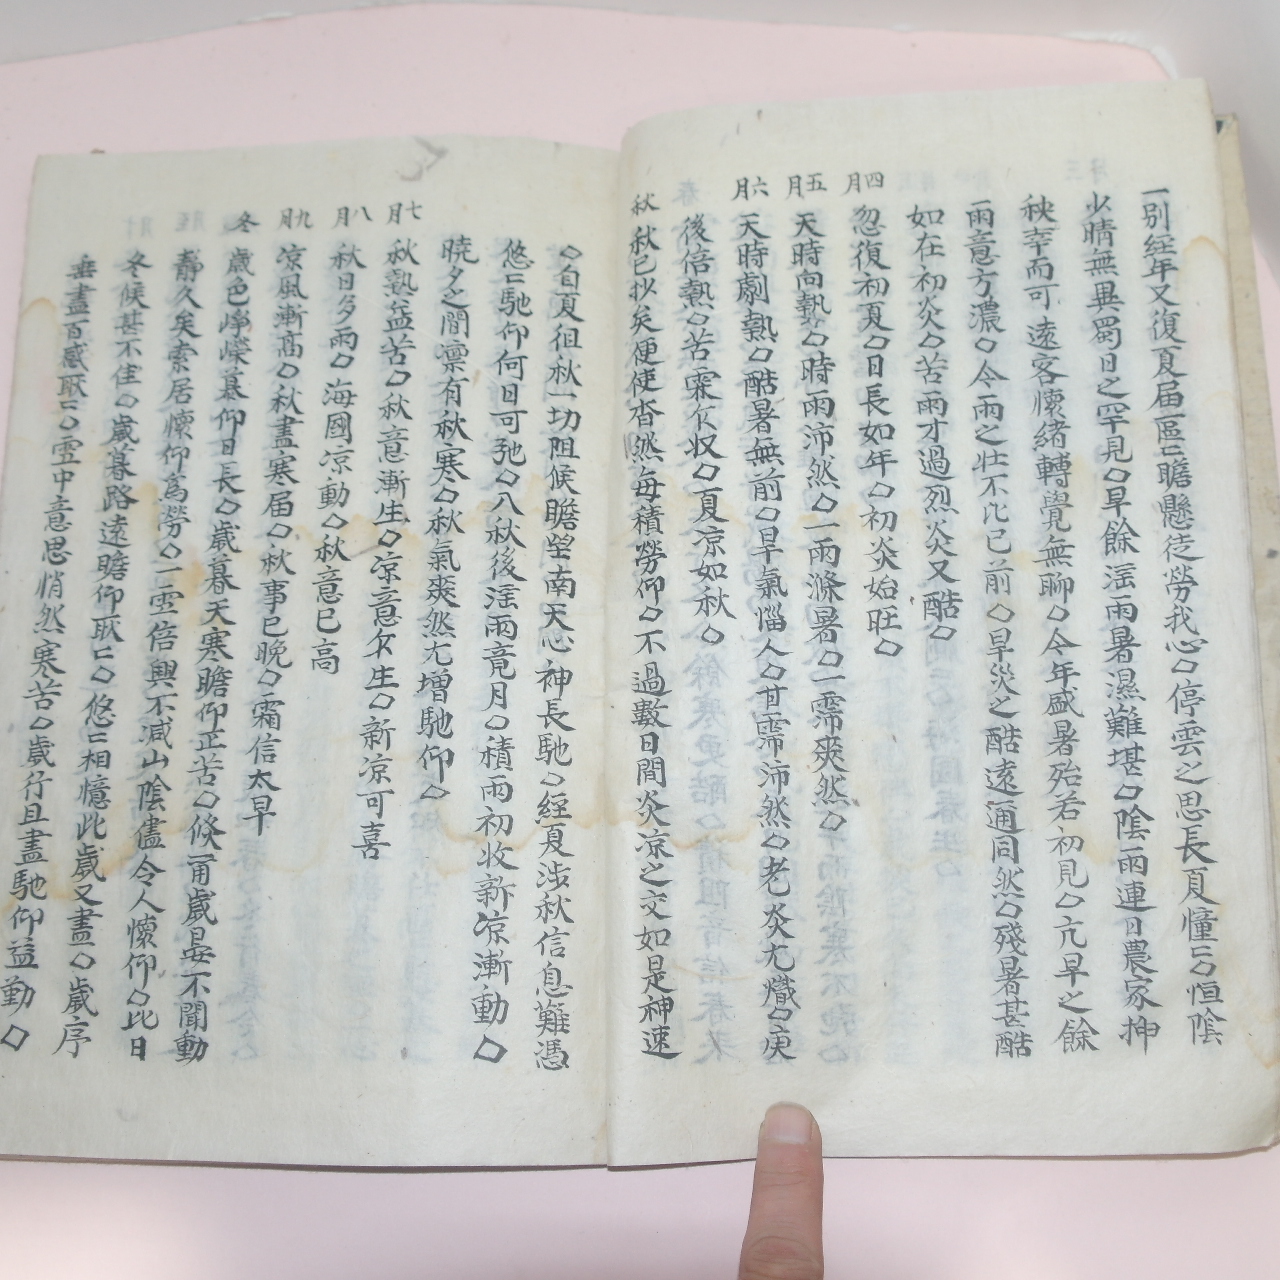 一別經年又復夏届區〻瞻懸徒勞我心○停雲之思長夏憧〻○恒陰
少晴無異蜀日之罕見○旱餘滛雨暑濕難堪○陰雨連日農家抻
秧幸而可遠客懷緒轉覺無聊○今年盛暑殆若初見○亢旱之餘
雨意方濃○今雨之壮不比已前○旱災之酷遠通同然○殘暑甚酷
如在初炎○苦雨才過烈炎又酷○
四月 忽復初夏○日長如年○初炎始旺○
五月 天時向熱○時雨沛然○一雨滌暑○一霈爽然○
六月 天時劇熱○酷暑無前○旱氣惱人○甘霈沛然○老炎尤熾○庚
後倍熱○苦霖乍収○夏凉如秋○
秋 秋已抄矣便使杳然每積勞仰○不過數日間炎凉之交如是神速
○自夏徂秋一切阻候瞻望南天心神長馳○經夏涉秋信息難憑
悠〻馳仰何日可弛○八秋後滛雨竟月○積雨初收新凉漸動○
曉夕之間凛有秋寒○秋氣爽然尤增馳仰○
七月 秋熱益苦○秋意漸生○凉意乍生○新凉可喜
八月 秋日多雨○海國凉動○秋意已高
九月 凉風漸高○秋盡寒届○秋事已晩○霜信太早
冬 歲色崢嶸慕仰日長○歲暮天寒瞻仰正苦○倏爾歲晏不聞動
靜久矣索居懷仰爲勞○一雪倍興不减山陰儘令人懷仰○比日
冬候甚不佳○歲暮路遠瞻仰耿〻○悠〻相憶此歲又盡○歲序
垂盡百感耿〻○雪中意思悄然寒苦○歲行且盡馳仰益勤○